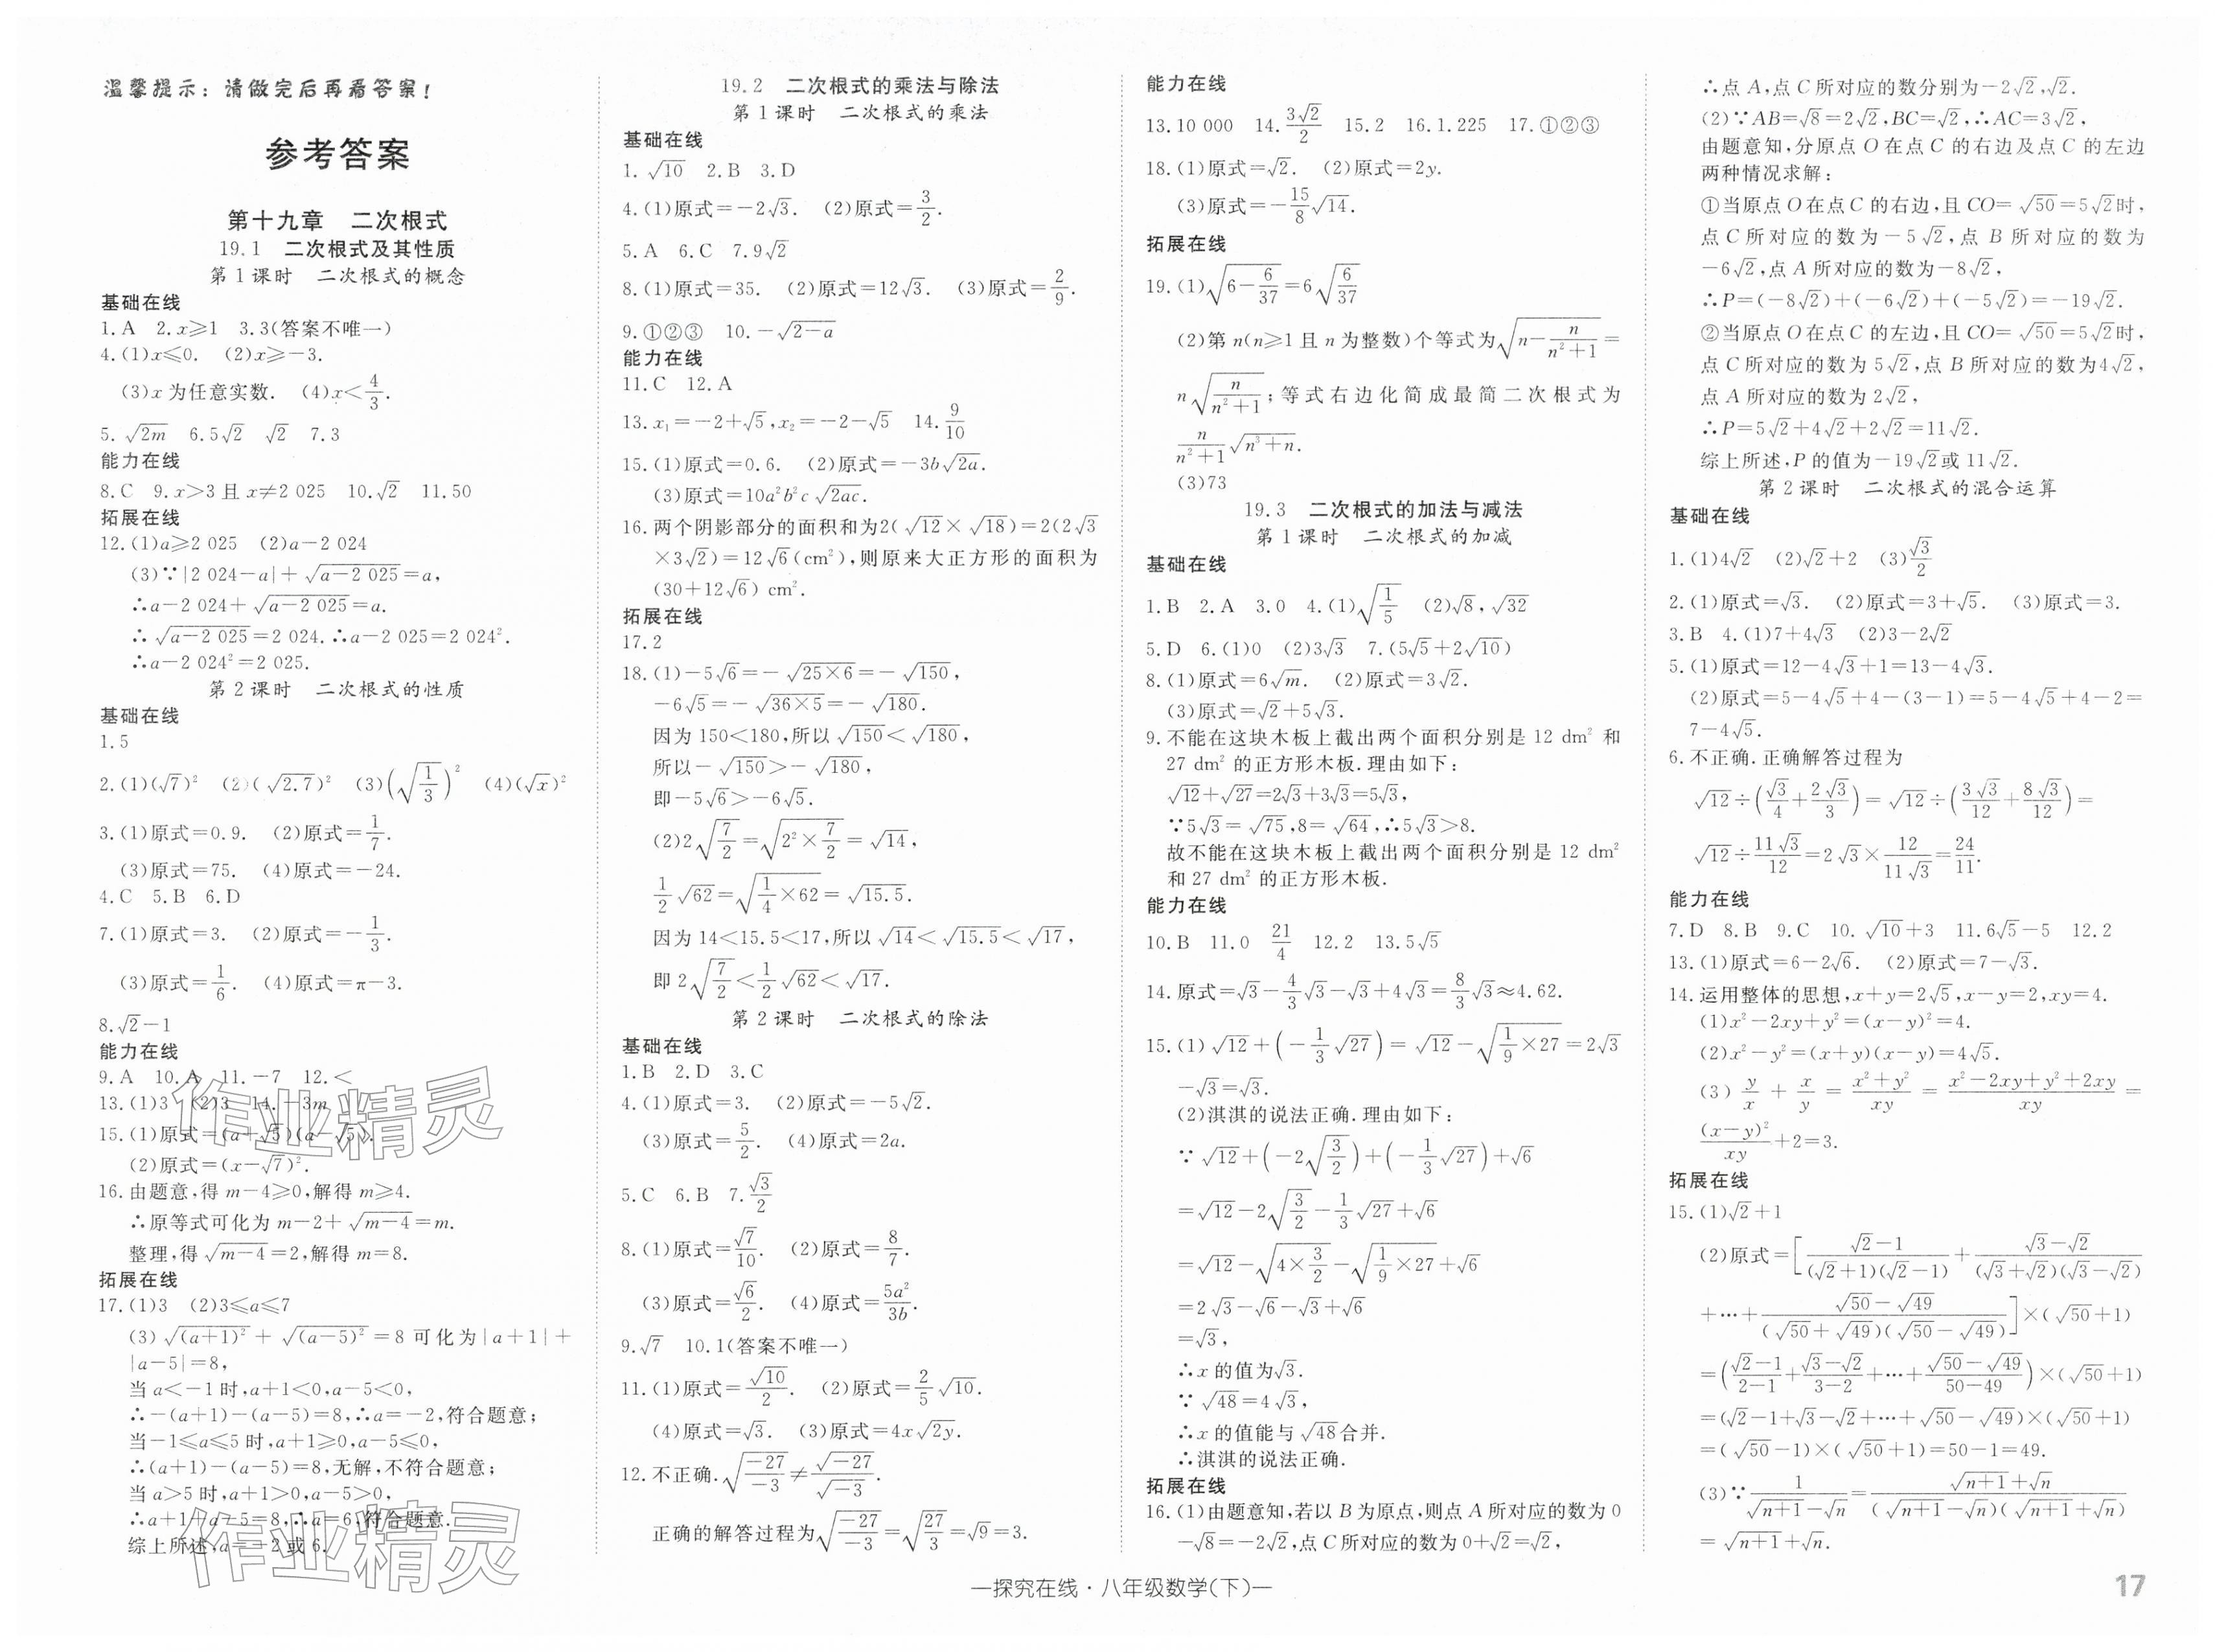 温馨提示：请做完后再看答案！
参考答案
第十九章　二次根式
19.1　二次根式及其性质
第1课时　二次根式的概念
基础在线
1.A　2.x≥1　3.3(答案不唯一)
4.(1)x≤0.　(2)x≥-3.
(3)x为任意实数.　(4)x<4/3.
5.√(2m)　6.5√2　√2　7.3
能力在线
8.C　9.x>3且x≠2 025　10.√2　11.50
拓展在线
12.(1)a≥2 025　(2)a-2 024
(3)∵|2 024-a|+√(a-2 025)=a,
∴a-2 024+√(a-2 025)=a.
∴√(a-2 025)=2 024.∴a-2 025=2 024².
∴a-2 024²=2 025.
第2课时　二次根式的性质
基础在线
1.5
2.(1)(√7)²　(2)(√2.7)²　(3)(√(1/3))²　(4)(√x)²
3.(1)原式=0.9.　(2)原式=1/7.
(3)原式=75.　(4)原式=-24.
4.C　5.B　6.D
7.(1)原式=3.　(2)原式=-1/3.
(3)原式=1/6.　(4)原式=π-3.
8.√2-1
能力在线
9.A　10.A　11.-7　12.<
13.(1)3　(2)3　14.-3m
15.(1)原式=(a+√5)(a-√5).
(2)原式=(x-√7)².
16.由题意,得m-4≥0,解得m≥4.
∴原等式可化为m-2+√(m-4)=m.
整理,得√(m-4)=2,解得m=8.
拓展在线
17.(1)3　(2)3≤a≤7
(3)√((a+1)²)+√((a-5)²)=8可化为|a+1|+
|a-5|=8,
当a<-1时,a+1<0,a-5<0,
∴-(a+1)-(a-5)=8,∴a=-2,符合题意;
当-1≤a≤5时,a+1≥0,a-5≤0,
∴(a+1)-(a-5)=8,无解,不符合题意;
当a>5时,a+1>0,a-5>0,
∴a+1+a-5=8,∴a=6,符合题意.
综上所述,a=-2或6.
19.2　二次根式的乘法与除法
第1课时　二次根式的乘法
基础在线
1.√10　2.B　3.D
4.(1)原式=-2√3.　(2)原式=3/2.
5.A　6.C　7.9√2
8.(1)原式=35.　(2)原式=12√3.　(3)原式=2/9.
9.①②③　10.-√(2-a)
能力在线
11.C　12.A
13.x₁=-2+√5,x₂=-2-√5　14.9/10
15.(1)原式=0.6.　(2)原式=-3b√(2a).
(3)原式=10a²b²c√(2ac).
16.两个阴影部分的面积和为2(√12×√18)=2(2√3
×3√2)=12√6(cm²),则原来大正方形的面积为
(30+12√6) cm².
拓展在线
17.2
18.(1)-5√6=-√(25×6)=-√150,
-6√5=-√(36×5)=-√180.
因为150<180,所以√150<√180,
所以-√150>-√180,
即-5√6>-6√5.
(2)2√(7/2)=√(2²×7/2)=√14,
1/2√62=√(1/4×62)=√15.5.
因为14<15.5<17,所以√14<√15.5<√17,
即2√(7/2)<1/2√62<√17.
第2课时　二次根式的除法
基础在线
1.B　2.D　3.C
4.(1)原式=3.　(2)原式=-5√2.
(3)原式=5/2.　(4)原式=2a.
5.C　6.B　7.√3/2
8.(1)原式=√7/10.　(2)原式=8/7.
(3)原式=√6/2.　(4)原式=5a²/3b.
9.√7　10.1(答案不唯一)
11.(1)原式=√10/2.　(2)原式=2/5√10.
(4)原式=√3.　(3)原式=4x√(2y).
12.不正确.√(-27/-3)≠√(-27)/√(-3).
正确的解答过程为√(-27/-3)=√(27/3)=√9=3.
能力在线
13.10 000　14.3√2/2　15.2　16.1.225　17.①②③
18.(1)原式=√2.　(2)原式=2y.
(3)原式=-15/8√14.
拓展在线
19.(1)√(6-6/37)=6√(6/37)
(2)第n(n≥1且n为整数)个等式为√(n-n/(n²+1))=
n√(n/(n²+1));等式右边化简成最简二次根式为
n/(n²+1)√(n³+n).
(3)73
19.3　二次根式的加法与减法
第1课时　二次根式的加减
基础在线
1.B　2.A　3.0　4.(1)√(1/5)　(2)√8,√32
5.D　6.(1)0　(2)3√3　7.(5√5+2√10)
8.(1)原式=6√m.　(2)原式=3√2.
(3)原式=√2+5√3.
9.不能在这块木板上截出两个面积分别是12 dm²和
27 dm²的正方形木板.理由如下:
√12+√27=2√3+3√3=5√3,
∵5√3=√75,8=√64,∴5√3>8.
故不能在这块木板上截出两个面积分别是12 dm²
和27 dm²的正方形木板.
能力在线
10.B　11.0　21/4　12.2　13.5√5
14.原式=√3-4/3√3-√3+4√3=8/3√3≈4.62.
15.(1)√12+(-1/3√27)=√12-√(1/9×27)=2√3
-√3=√3.
(2)淇淇的说法正确.理由如下:
∵√12+(-2√(3/2))+(-1/3√27)+√6
=√12-2√(3/2)-1/3√27+√6
=√12-√(4×3/2)-√(1/9×27)+√6
=2√3-√6-√3+√6
=√3,
∴x的值为√3.
∵√48=4√3,
∴x的值能与√48合并.
∴淇淇的说法正确.
拓展在线
16.(1)由题意知,若以B为原点,则点A所对应的数为0
-√8=-2√2,点C所对应的数为0+√2=√2,
∴点A,点C所对应的数分别为-2√2,√2.
(2)∵AB=√8=2√2,BC=√2,∴AC=3√2,
由题意知,分原点O在点C的右边及点C的左边
两种情况求解:
①当原点O在点C的右边,且CO=√50=5√2时,
点C所对应的数为-5√2,点B所对应的数为
-6√2,点A所对应的数为-8√2,
∴P=(-8√2)+(-6√2)+(-5√2)=-19√2.
②当原点O在点C的左边,且CO=√50=5√2时,
点C所对应的数为5√2,点B所对应的数为4√2,
点A所对应的数为2√2,
∴P=5√2+4√2+2√2=11√2.
综上所述,P的值为-19√2或11√2.
第2课时　二次根式的混合运算
基础在线
1.(1)4√2　(2)√2+2　(3)√3/2
2.(1)原式=√3.　(2)原式=3+√5.　(3)原式=3.
3.B　4.(1)7+4√3　(2)3-2√2
5.(1)原式=12-4√3+1=13-4√3.
(2)原式=5-4√5+4-(3-1)=5-4√5+4-2=
7-4√5.
6.不正确.正确解答过程为
√12÷(√3/4+2√3/3)=√12÷(3√3/12+8√3/12)=
√12÷11√3/12=2√3×12/(11√3)=24/11.
能力在线
7.D　8.B　9.C　10.√10+3　11.6√5-5　12.2
13.(1)原式=6-2√6.　(2)原式=7-√3.
14.运用整体的思想,x+y=2√5,x-y=2,xy=4.
(1)x²-2xy+y²=(x-y)²=4.
(2)x²-y²=(x+y)(x-y)=4√5.
(3)y/x+x/y=(x²+y²)/xy=(x²-2xy+y²+2xy)/xy=
(x-y)²/xy+2=3.
拓展在线
15.(1)√2+1
(2)原式=[(√2-1)/((√2+1)(√2-1))+(√3-√2)/((√3+√2)(√3-√2))
+…+(√50-√49)/((√50+√49)(√50-√49))]×(√50+1)
=((√2-1)/(2-1)+(√3-√2)/(3-2)+…+(√50-√49)/(50-49))×(√50+1)
=(√2-1+√3-√2+…+√50-√49)×(√50+1)
=(√50-1)×(√50+1)=50-1=49.
(3)∵1/(√(n+1)-√n)=(√(n+1)+√n)/((√(n+1)-√n)(√(n+1)+√n))
=√(n+1)+√n.
—探究在线·八年级数学(下)—
17
作业精灵
作业精灵